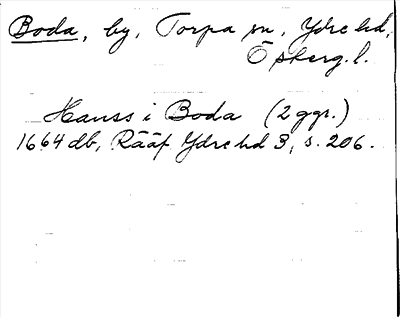 Boda, by, Torpa sn, Ydre hd,
Östergl.
Hanss i Boda (2 ggr.)
1664 db, Rääf Ydre hd 3, s. 206.